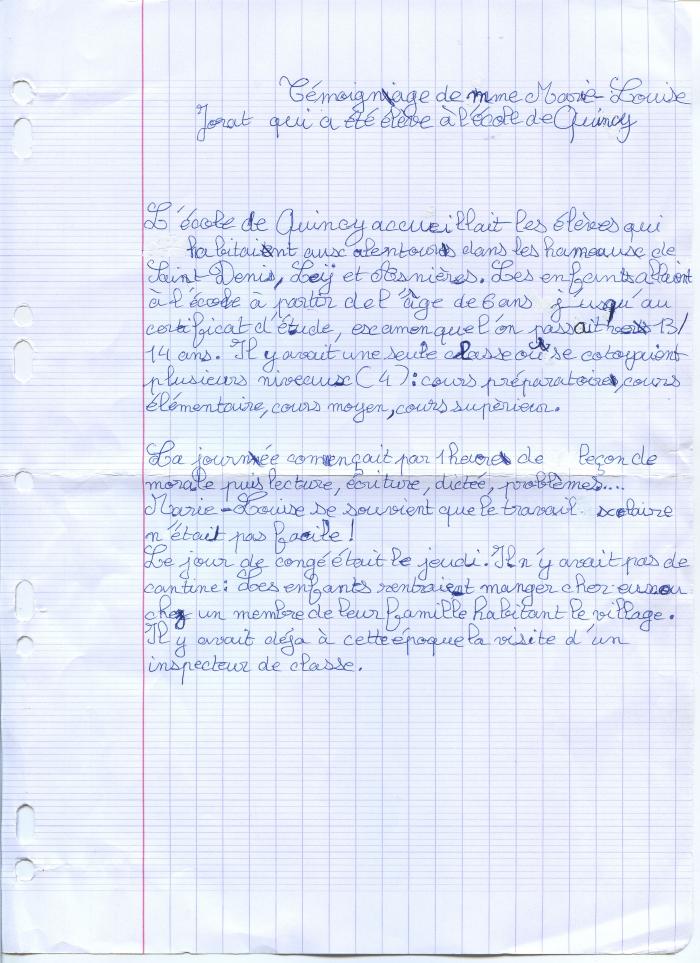 Témoignage de mme Marie-Louise
Jorat qui a été élève à l'école de Quincy
L'école de Quincy accueillait les élèves qui
habitaient aux alentours dans les hameaux de
Saint-Denis, Leÿ et Asnières. Les enfants allaient
à l'école à partir de l'âge de 6 ans jusqu'au
certificat d'étude, examen que l'on passait vers 13/
14 ans. Il y avait une seule classe où se cotoyaient
plusieurs niveaux (4): cours préparatoire, cours
élémentaire, cours moyen, cours supèrieur.
La journée començait par 1 heure de leçon de
morale puis lecture, écriture, dictée, problèmes....
Marie-Louise se souvient que le travail scolaire
n'était pas facile!
Le jour de congé était le jeudi. Il n'y avait pas de
cantine: Les enfants rentraient manger chez eux ou
chez un membre de leur famille habitant le village.
Il y avait déja à cette époque la visite d'un
inspecteur de classe.